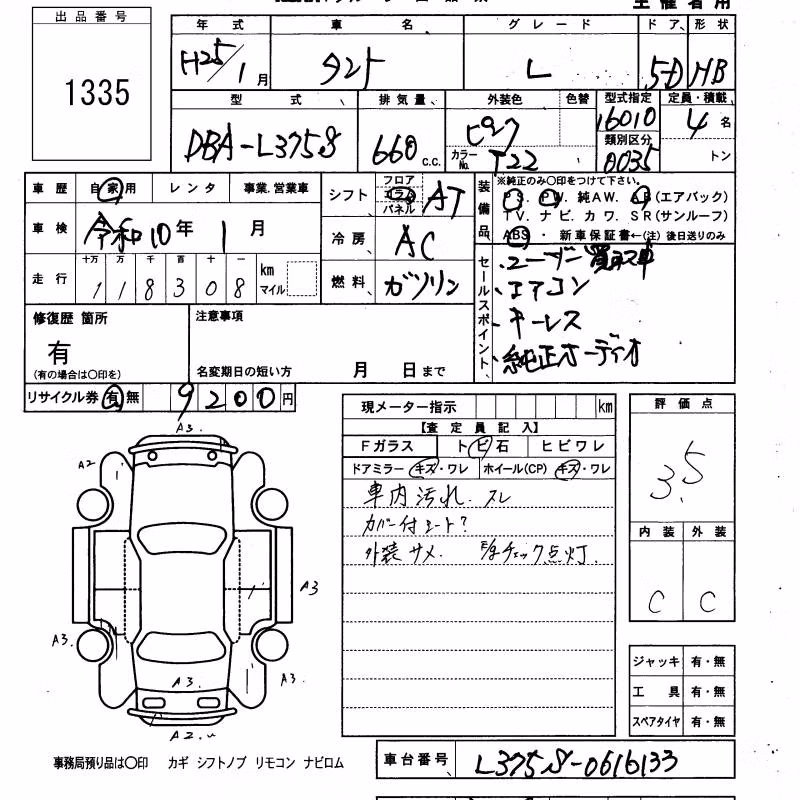 主催者用
出品番号
1335
年式 車名 グレード ドア 形状
H25/1月 タント L 5-D HB
型式 排気量 外装色 色替 型式指定 定員・積載
DBA-L375S 660 c.c. ピンク 16010 4名
カラーNo. T22 類別区分 0035 トン
車歴 自家用 レンタ 事業.営業車
シフト フロア コラム パネル AT
装備品 ※純正のみ〇印をつけて下さい。
PS. PW. 純AW. AB(エアバック)
TV. ナビ. カワ. SR(サンルーフ)
ABS・新車保証書←(注)後日送りのみ
車検 令和10年1月
冷房 AC
走行 十万 万 千 百 十 一
118308 km マイル
燃料 ガソリン
セールスポイント
・ユーザー買取車
・エアコン
・キーレス
・純正オーディオ
修復歴 箇所
有
(有の場合は〇印を)
注意事項
名変期日の短い方 月 日まで
リサイクル券 有 無 9200円
現メーター指示 km
【査定員記入】
Fガラス トビ石 ヒビワレ
ドアミラー キズ・ワレ ホイール(CP) キズ・ワレ
車内汚れ. スレ
カバー付シート?
外装サメ. チェック点灯.
評価点
3.5
内装 外装
C C
A3.
A2
A3
A3.
A3.
A3.
A2.
ジャッキ 有・無
工具 有・無
スペアタイヤ 有・無
事務局預り品は〇印 カギ シフトノブ リモコン ナビロム
車台番号 L375S-0616133